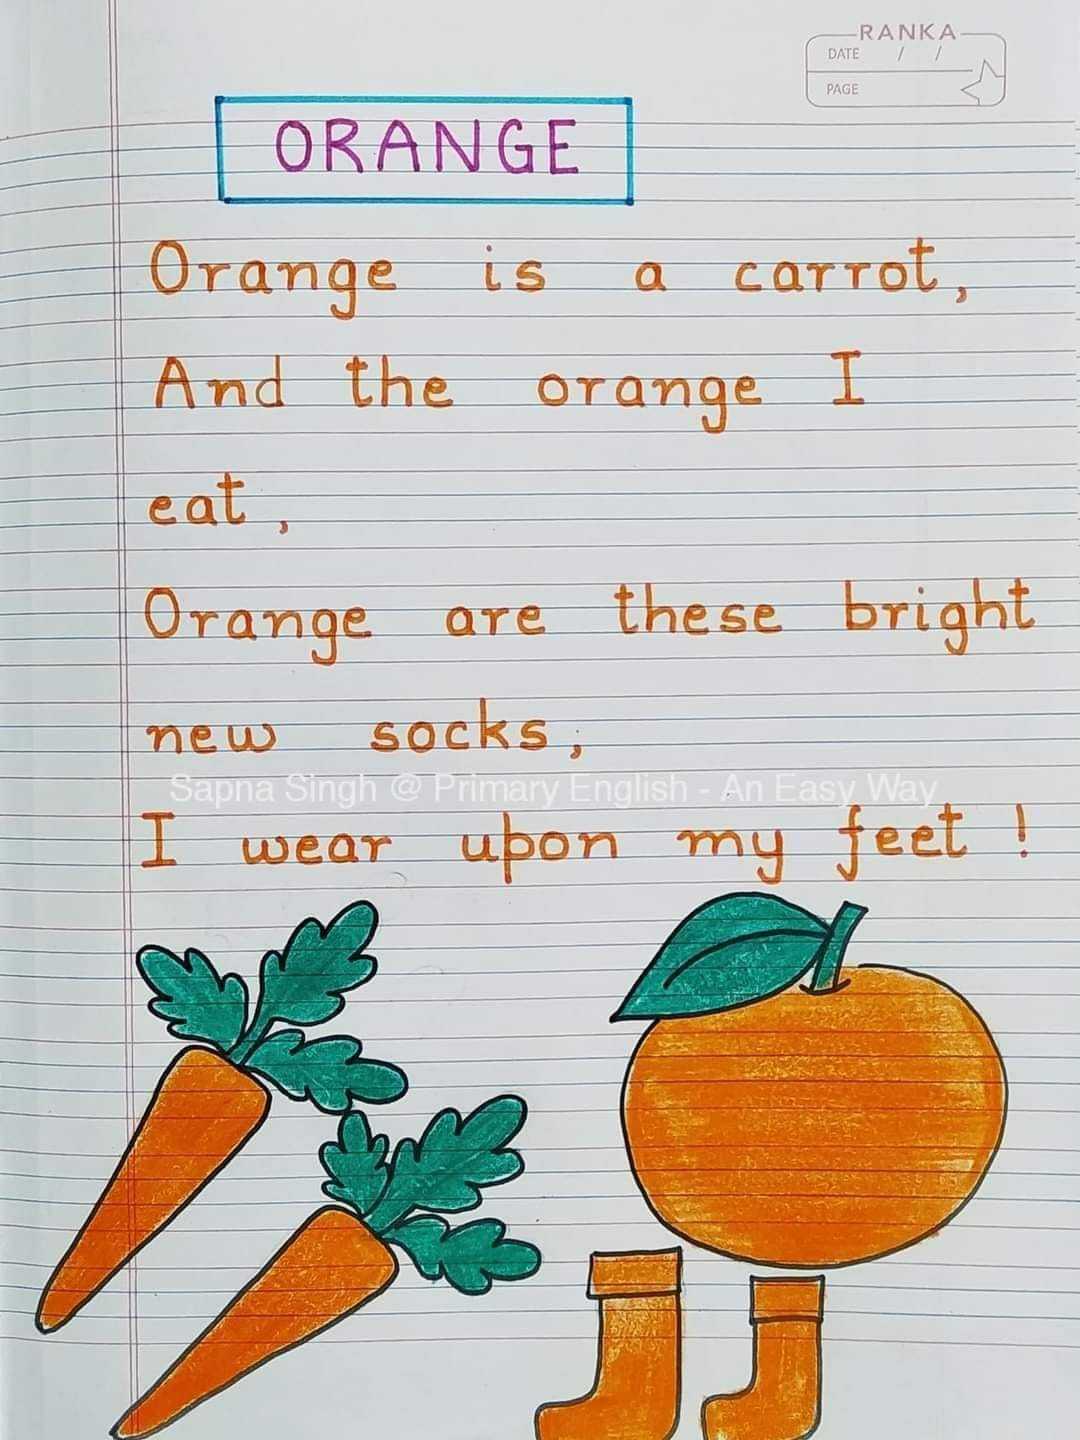 RANKA
DATE / /
PAGE
ORANGE
Orange is a carrot,
And the orange I
eat,
Orange are these bright
new socks,
Sapna Singh @ Primary English - An Easy Way
I wear upon my feet !